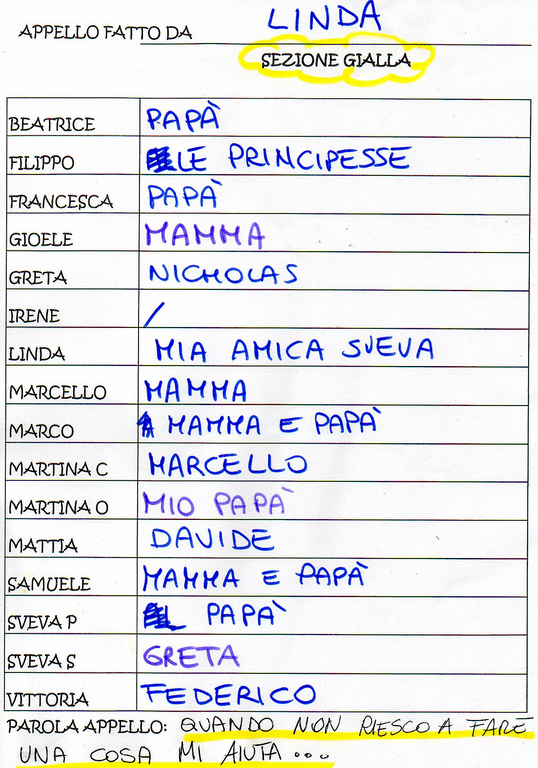 APPELLO FATTO DA LINDA
SEZIONE GIALLA
BEATRICE PAPÀ
FILIPPO LE PRINCIPESSE
FRANCESCA PAPÀ
GIOELE MAMMA
GRETA NICHOLAS
IRENE /
LINDA MIA AMICA SVEVA
MARCELLO MAMMA
MARCO MAMMA E PAPÀ
MARTINA C MARCELLO
MARTINA O MIO PAPÀ
MATTIA DAVIDE
SAMUELE MAMMA E PAPÀ
SVEVA P PAPÀ
SVEVA S GRETA
VITTORIA FEDERICO
PAROLA APPELLO: QUANDO NON RIESCO A FARE
UNA COSA MI AIUTA...